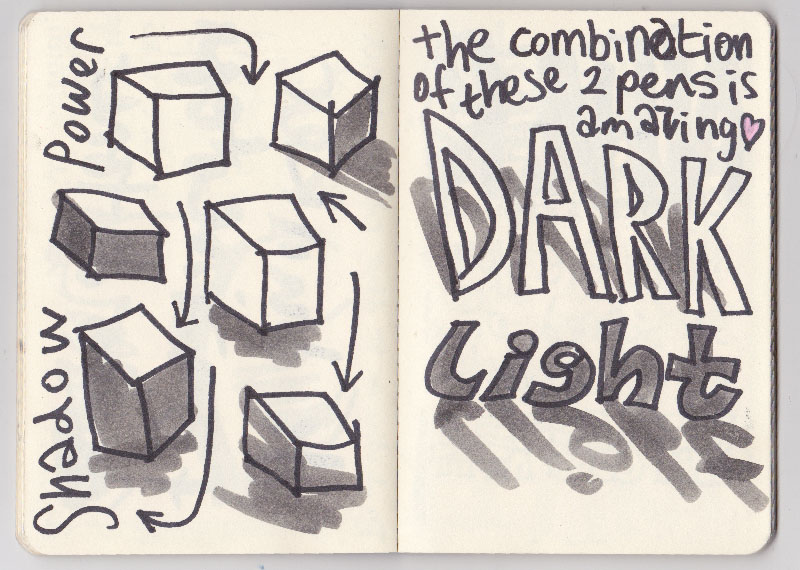 Power
Shadow
the combination
of these 2 pens is
amazing
DARK
Light